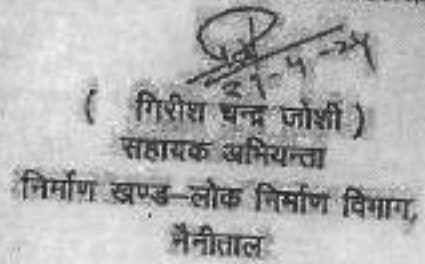 ( गिरीश चन्द्र जोशी )
सहायक अभियन्ता
निर्माण खण्ड-लोक निर्माण विभाग,
नैनीताल